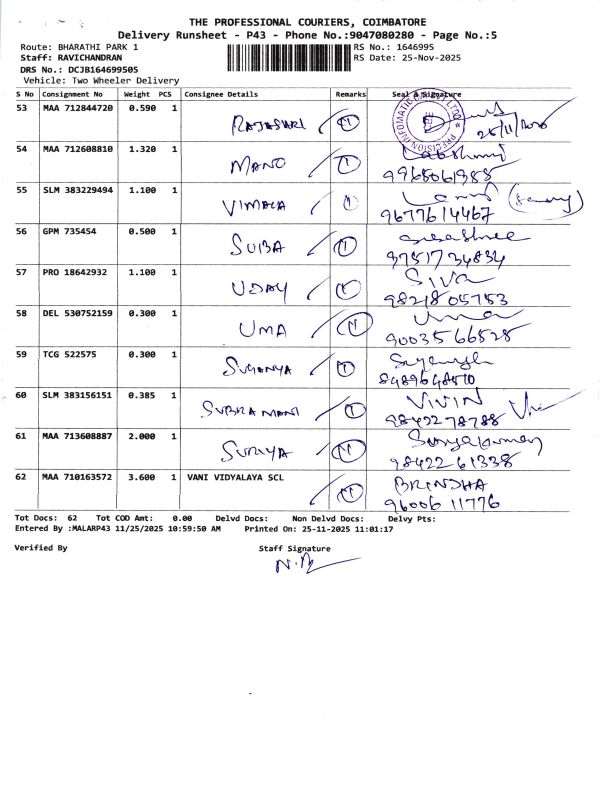 THE PROFESSIONAL COURIERS, COIMBATORE
Delivery Runsheet - P43 - Phone No.:9047080280 - Page No.:5
Route: BHARATHI PARK 1 RS No.: 1646995
Staff: RAVICHANDRAN RS Date: 25-Nov-2025
DRS No.: DCJB164699505
Vehicle: Two Wheeler Delivery
S No Consignment No Weight PCS Consignee Details Remarks Seal & Signature
53 MAA 712844720 0.590 1 RAJASHRI
25/11/2025
54 MAA 712608810 1.320 1 MANO Lakshmi
9965061988
55 SLM 383229494 1.100 1 VIMALA
9677614467
56 GPM 735454 0.500 1 SUIBA
9751734834
57 PRO 18642932 1.100 1 UDAY SIVA
9821805753
58 DEL 530752159 0.300 1 UMA Uma
9003566528
59 TCG 522575 0.300 1 SUGANYA
8489648510
60 SLM 383156151 0.385 1 SUBRAMANI VIVIN
9842278788
61 MAA 713608887 2.000 1 SURIYA Suryakumar
9842261338
62 MAA 710163572 3.600 1 VANI VIDYALAYA SCL BRINDHA
9600611776
Tot Docs: 62 Tot COD Amt: 0.00 Delvd Docs: Non Delvd Docs: Delvy Pts:
Entered By :MALARP43 11/25/2025 10:59:50 AM Printed On: 25-11-2025 11:01:17
Verified By Staff Signature